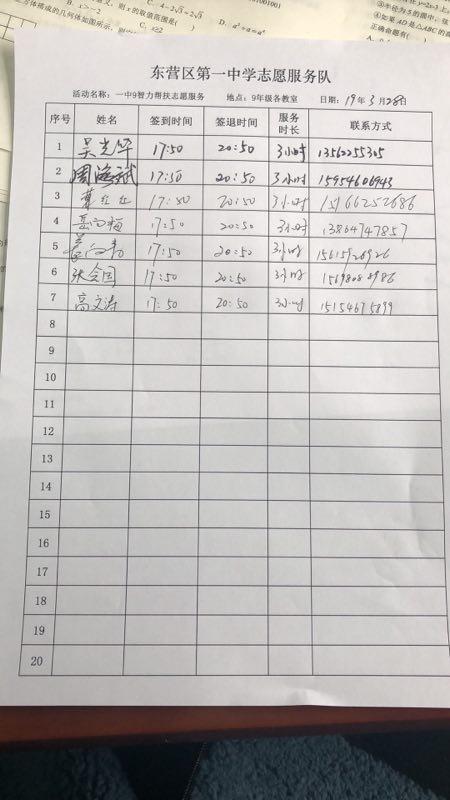 B. x>−2
C. 4−2√3=2√3
D. a²+a=a²
C. x≥2
东营区第一中学志愿服务队
活动名称：一中9智力帮扶志愿服务 地点：9年级各教室 日期：19年3月28日
序号 姓名 签到时间 签退时间 服务时长 联系方式
1 吴光华 17:50 20:50 3小时 13562255305
2 周海斌 17:50 20:50 3小时 15954606943
3 17:50 20:50 3小时 15166252686
4 岳向福 17:50 20:50 3小时 13864747857
5 17:50 20:50 3小时 15615926926
6 张会国 17:50 20:50 3小时
7 高文涛 17:50 20:50 3小时 15154675899
8
9
10
11
12
13
14
15
16
17
18
19
20